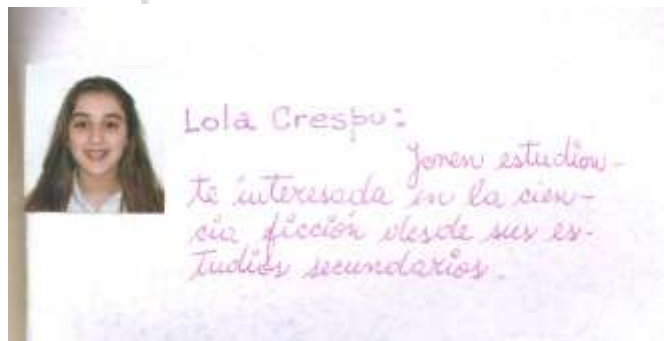 Lola Crespo:
Joven estudian-
te interesada en la cien-
cia ficción desde sus es-
tudios secundarios.